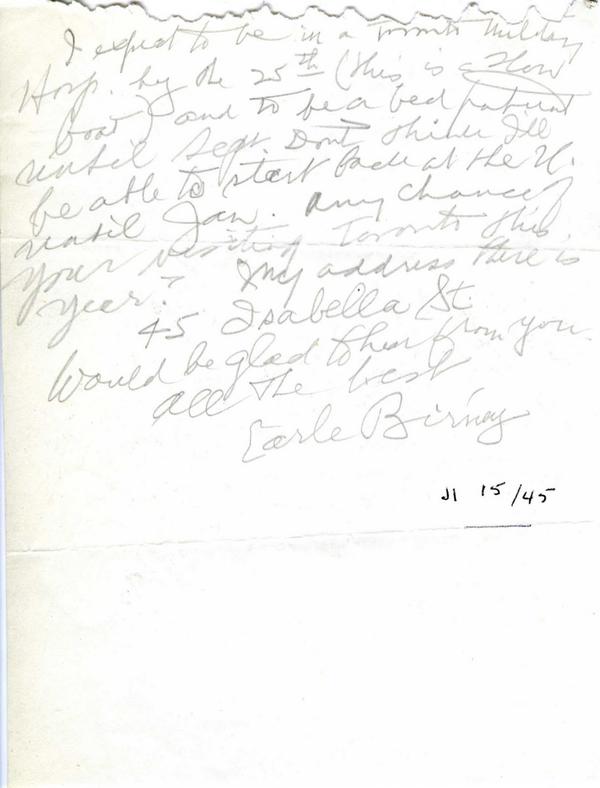 I expect to be in a Toronto Military
Hosp. by the 25th (this is a slow
boat) and to be a bed patient
until Sept. Don't think I'll
be able to start back at the U.
until Jan. Any chance of
your visiting Toronto this
year? My address there is
45 Isabella St.
Would be glad to hear from you.
All the best
Earle Birney
Jl 15/45